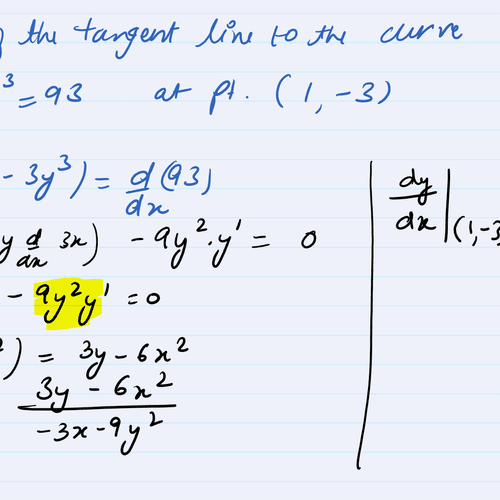 the tangent line to the curve
³ = 93 at pt. (1, -3)
- 3y³) = d/dx (93)
y d/dx 3x) - 9y²·y' = 0
- 9y²y' = 0
²) = 3y - 6x²
3y - 6x²
-3x - 9y²
dy/dx |(1, -3